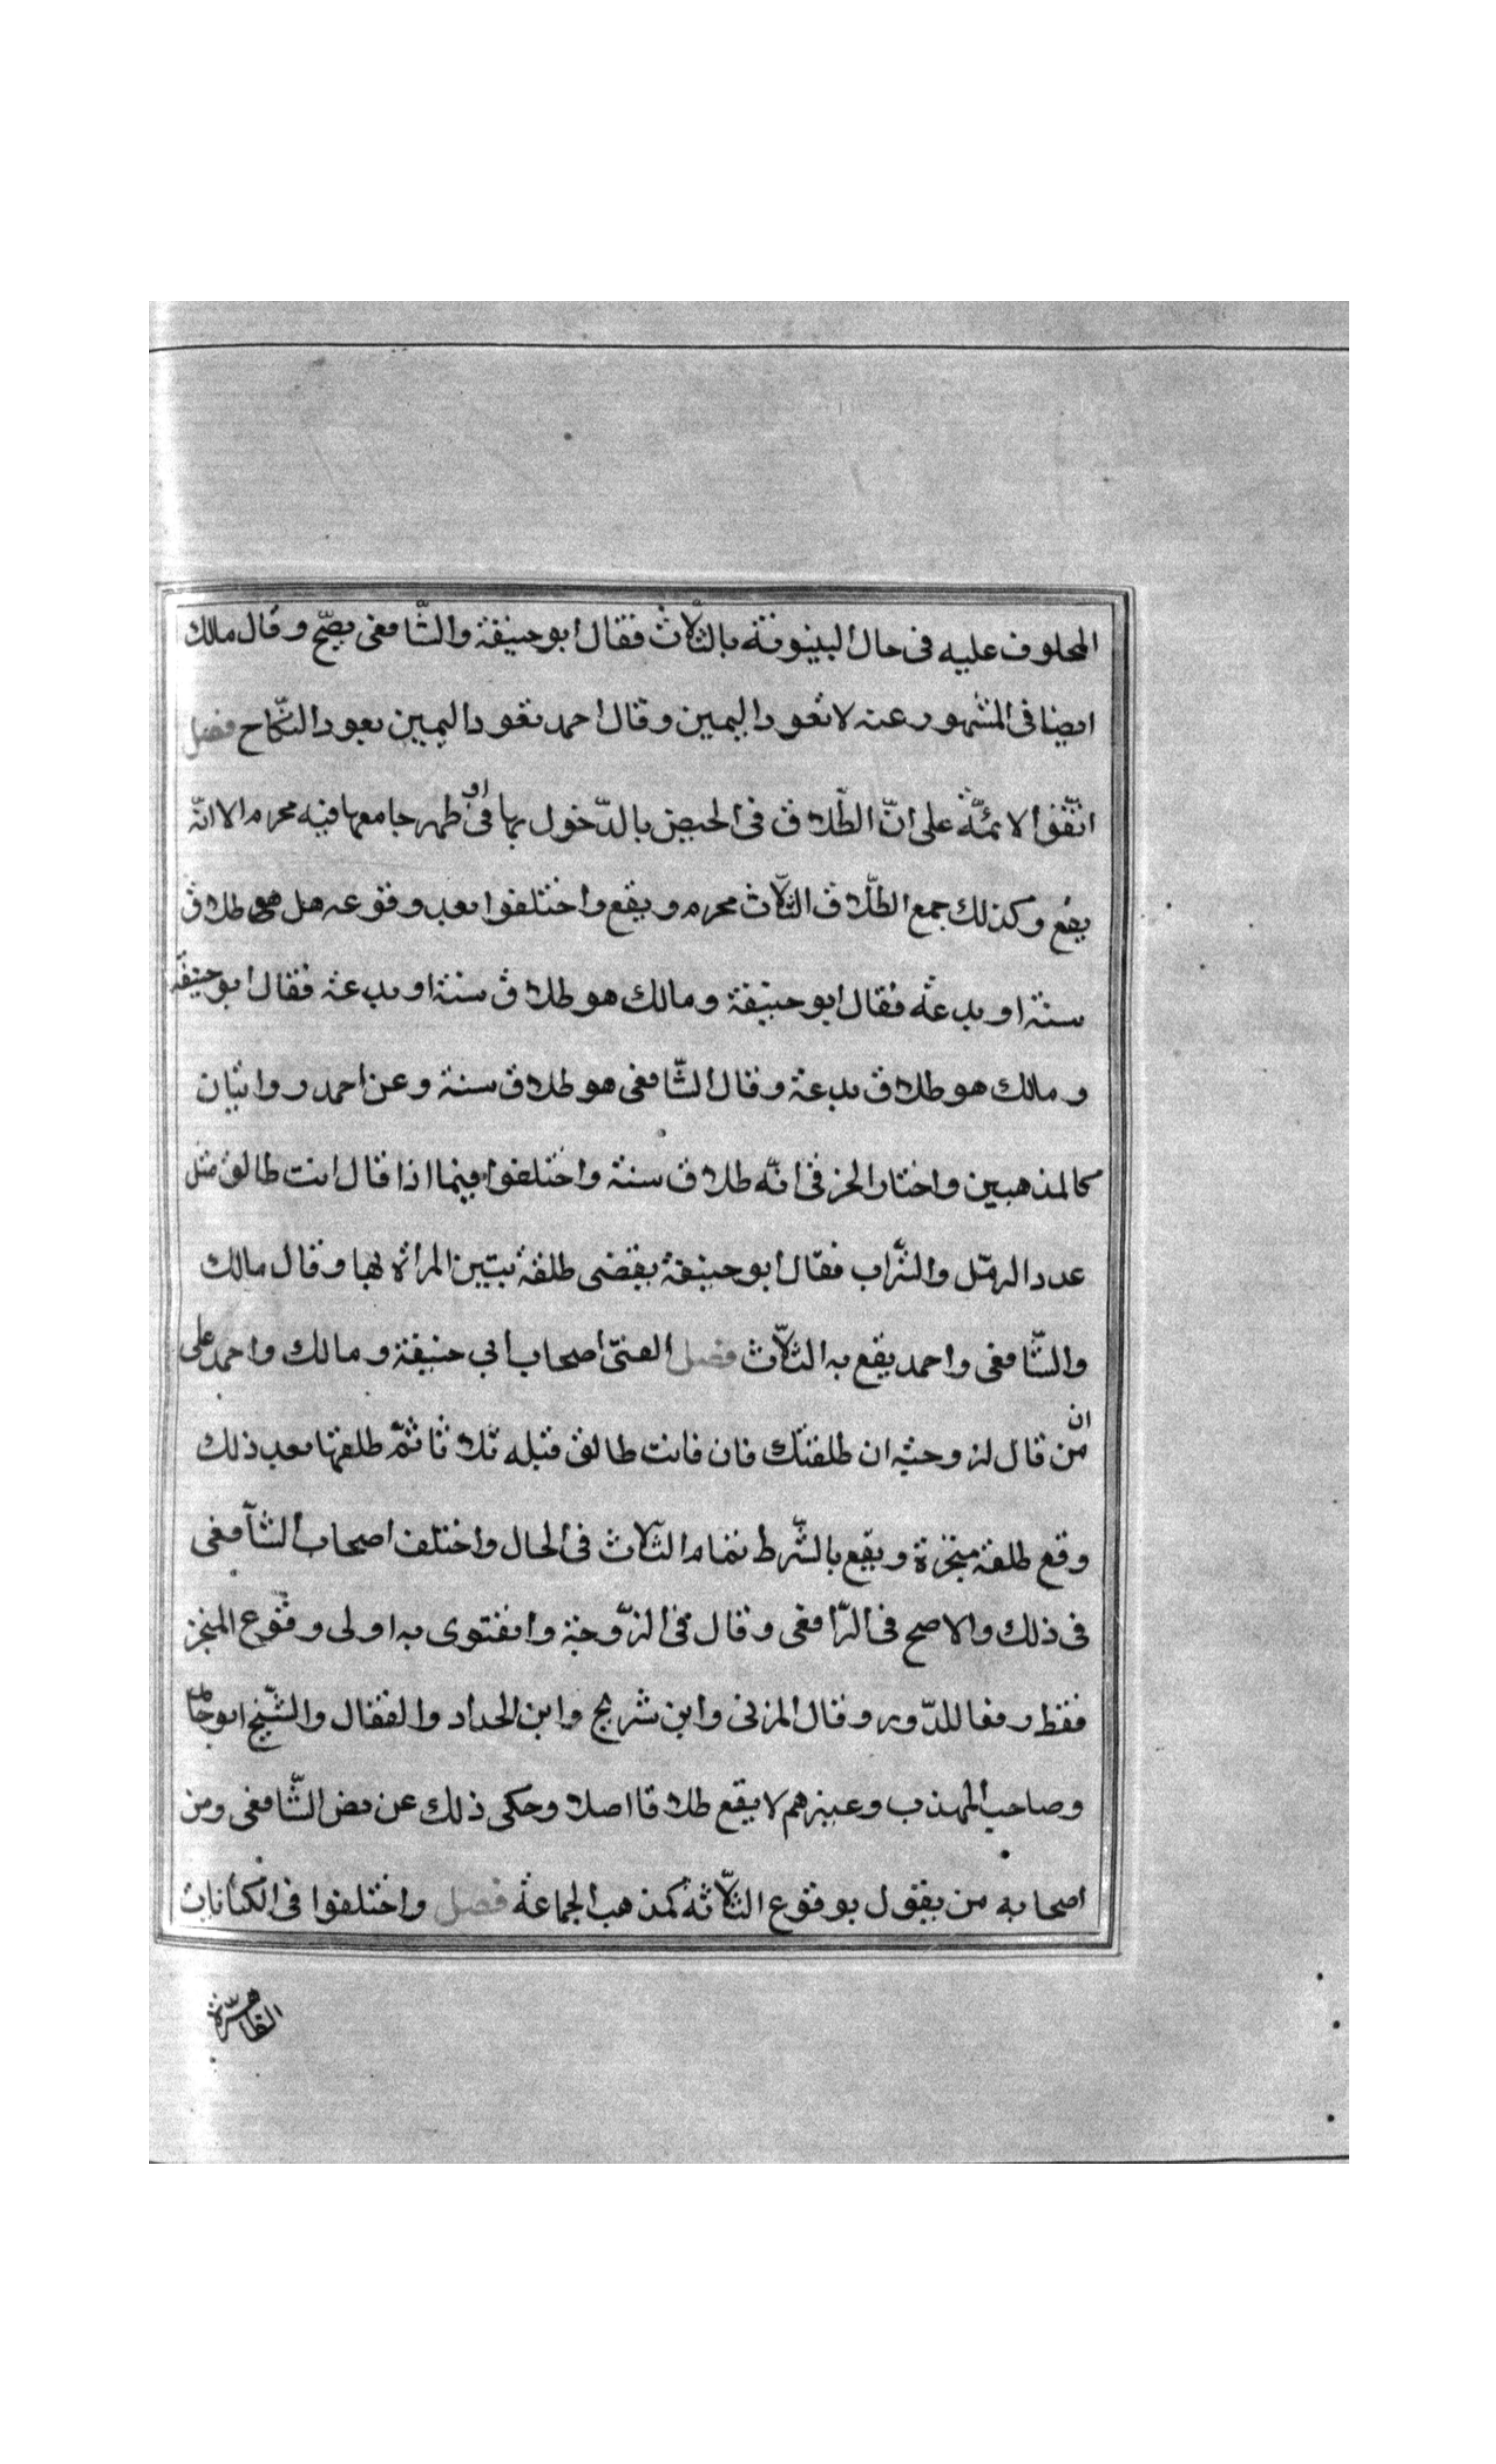 المحلوف عليه فى حال البينونة بالثلاث فقال ابو حنيفة والشّافعى يصحّ وقال مالك
ايضا فى المشهور عنه لا تعود اليمين وقال احمد تعود اليمين بعود النّكاح فصل
اتّفق الائمّة على انّ الطّلاق فى الحيض بالدّخول بها او فى طهر جامعها فيه محرم الا انّه
يقع وكذلك جمع الطّلاق الثّلاث محرم ويقع واختلفوا بعد وقوعه هل هى طلاق
سنة او بدعة فقال ابو حنيفة ومالك هو طلاق سنة او بدعة فقال ابو حنيفة
ومالك هو طلاق بدعة وقال الشّافعى هو طلاق سنة وعن احمد روايتان
كالمذهبين واختار الخرقى انّه طلاق سنة واختلفوا فيما اذا قال انت طالق مثل
عدد الرمل والتّراب فقال ابو حنيفة يقضى طلقة تبين المراة بها وقال مالك
والشّافعى واحمد يقع به الثلاث فصل اصحاب ابي حنيفة ومالك واحمد على
ان من قال لزوجته ان طلقتك فان فانت طالق قبله ثلاثا ثمّ طلقها بعد ذلك
وقع طلقة منجزة ويقع بالشّرط تمام الثلاث فى الحال واختلف اصحاب الشّافعى
فى ذلك والاصح فى الرّافعى وقال فى الزّوجة وافتوى به اولى وقوع المنجز
فقط رفعا للدّور وقال المزنى وابن شريح وابن الحداد والقفال والشّيخ ابو حامد
وصاحب المهذب وغيرهم لا يقع طلاقا اصلا وحكى ذلك عن نص الشّافعى ومن
اصحابه من يقول بوقوع الثلاثة كمذهب الجماعة فصل واختلفوا فى الكنانات
الظاهرة